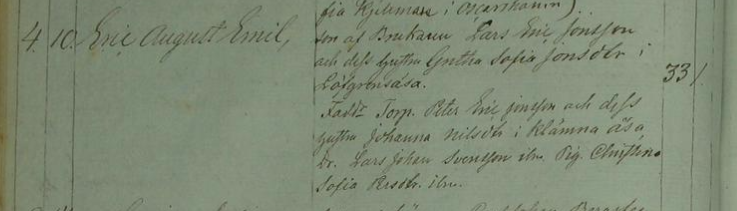 fia Kjellman i Oscarshamn).
4. 10. Eric August Emil,
son af Brukaren Lars Eric Jonsson
och dess hustru Gretha Sofia Jonsdtr i
Löfgrensåsa.
33/
Fadd: Torp. Peter Eric Jonsson och dess
hustru Johanna Nilsdtr i Klämna åsa
Dr. Lars Johan Svensson ibm. Pig. Christina
Sofia Persdtr. ibm.